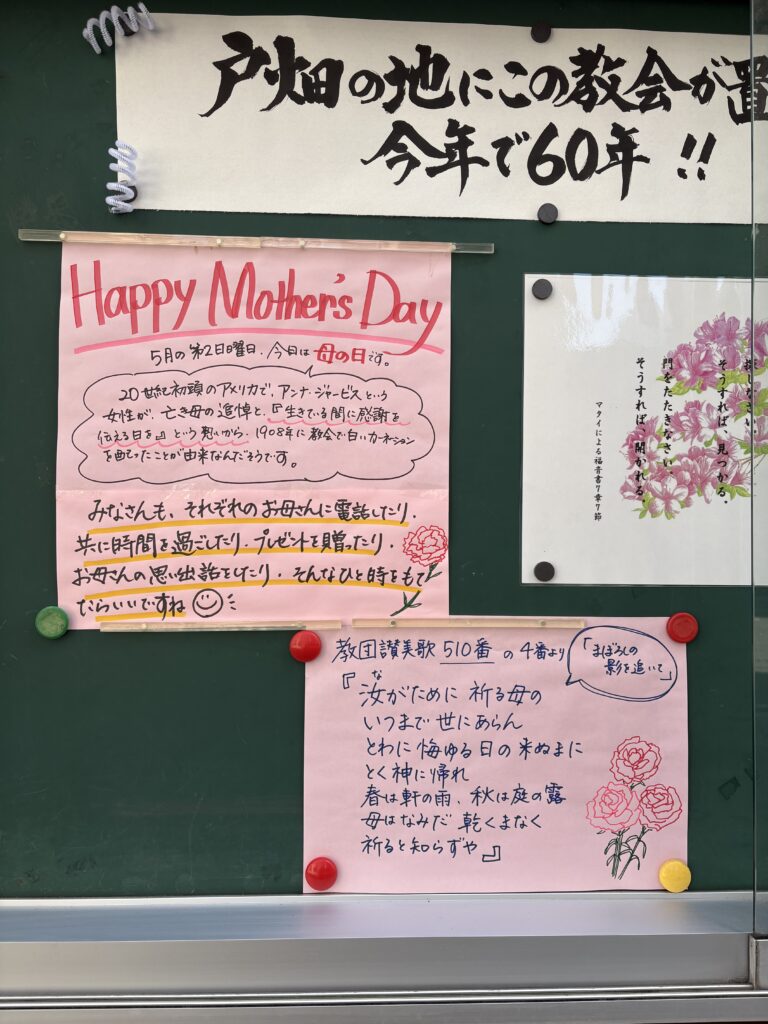 戸畑の地にこの教会が置
今年で60年!!
Happy Mother's Day
5月の第2日曜日、今日は母の日です。
20世紀初頭のアメリカで、アンナ・ジャービスという
女性が、亡き母の追悼と、『生きている間に感謝を
伝える日を』という想いから、1908年に教会で白いカーネーション
を配ったことが由来なんだそうです。
みなさんも、それぞれのお母さんに電話したり、
共に時間を過ごしたり、プレゼントを贈ったり、
お母さんの思い出話をしたり、そんなひと時をもて
たらいいですね
探しなさい。
そうすれば、見つかる。
門をたたきなさい。
そうすれば、開かれる。
マタイによる福音書7章7節
教団讃美歌 510番 の 4番より
「まぼろしの
影を追いて」
な
『汝がために 祈る母の
いつまで世にあらん
とわに悔ゆる日の来ぬまに
とく神に帰れ
春は軒の雨、秋は庭の露
母はなみだ 乾くまなく
祈ると知らずや』